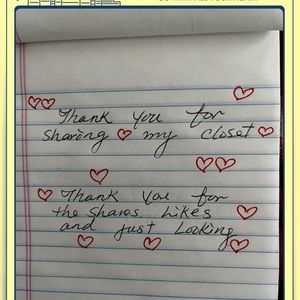 Thank you for
sharing my closet
Thank you for
the shares Likes
and just Looking